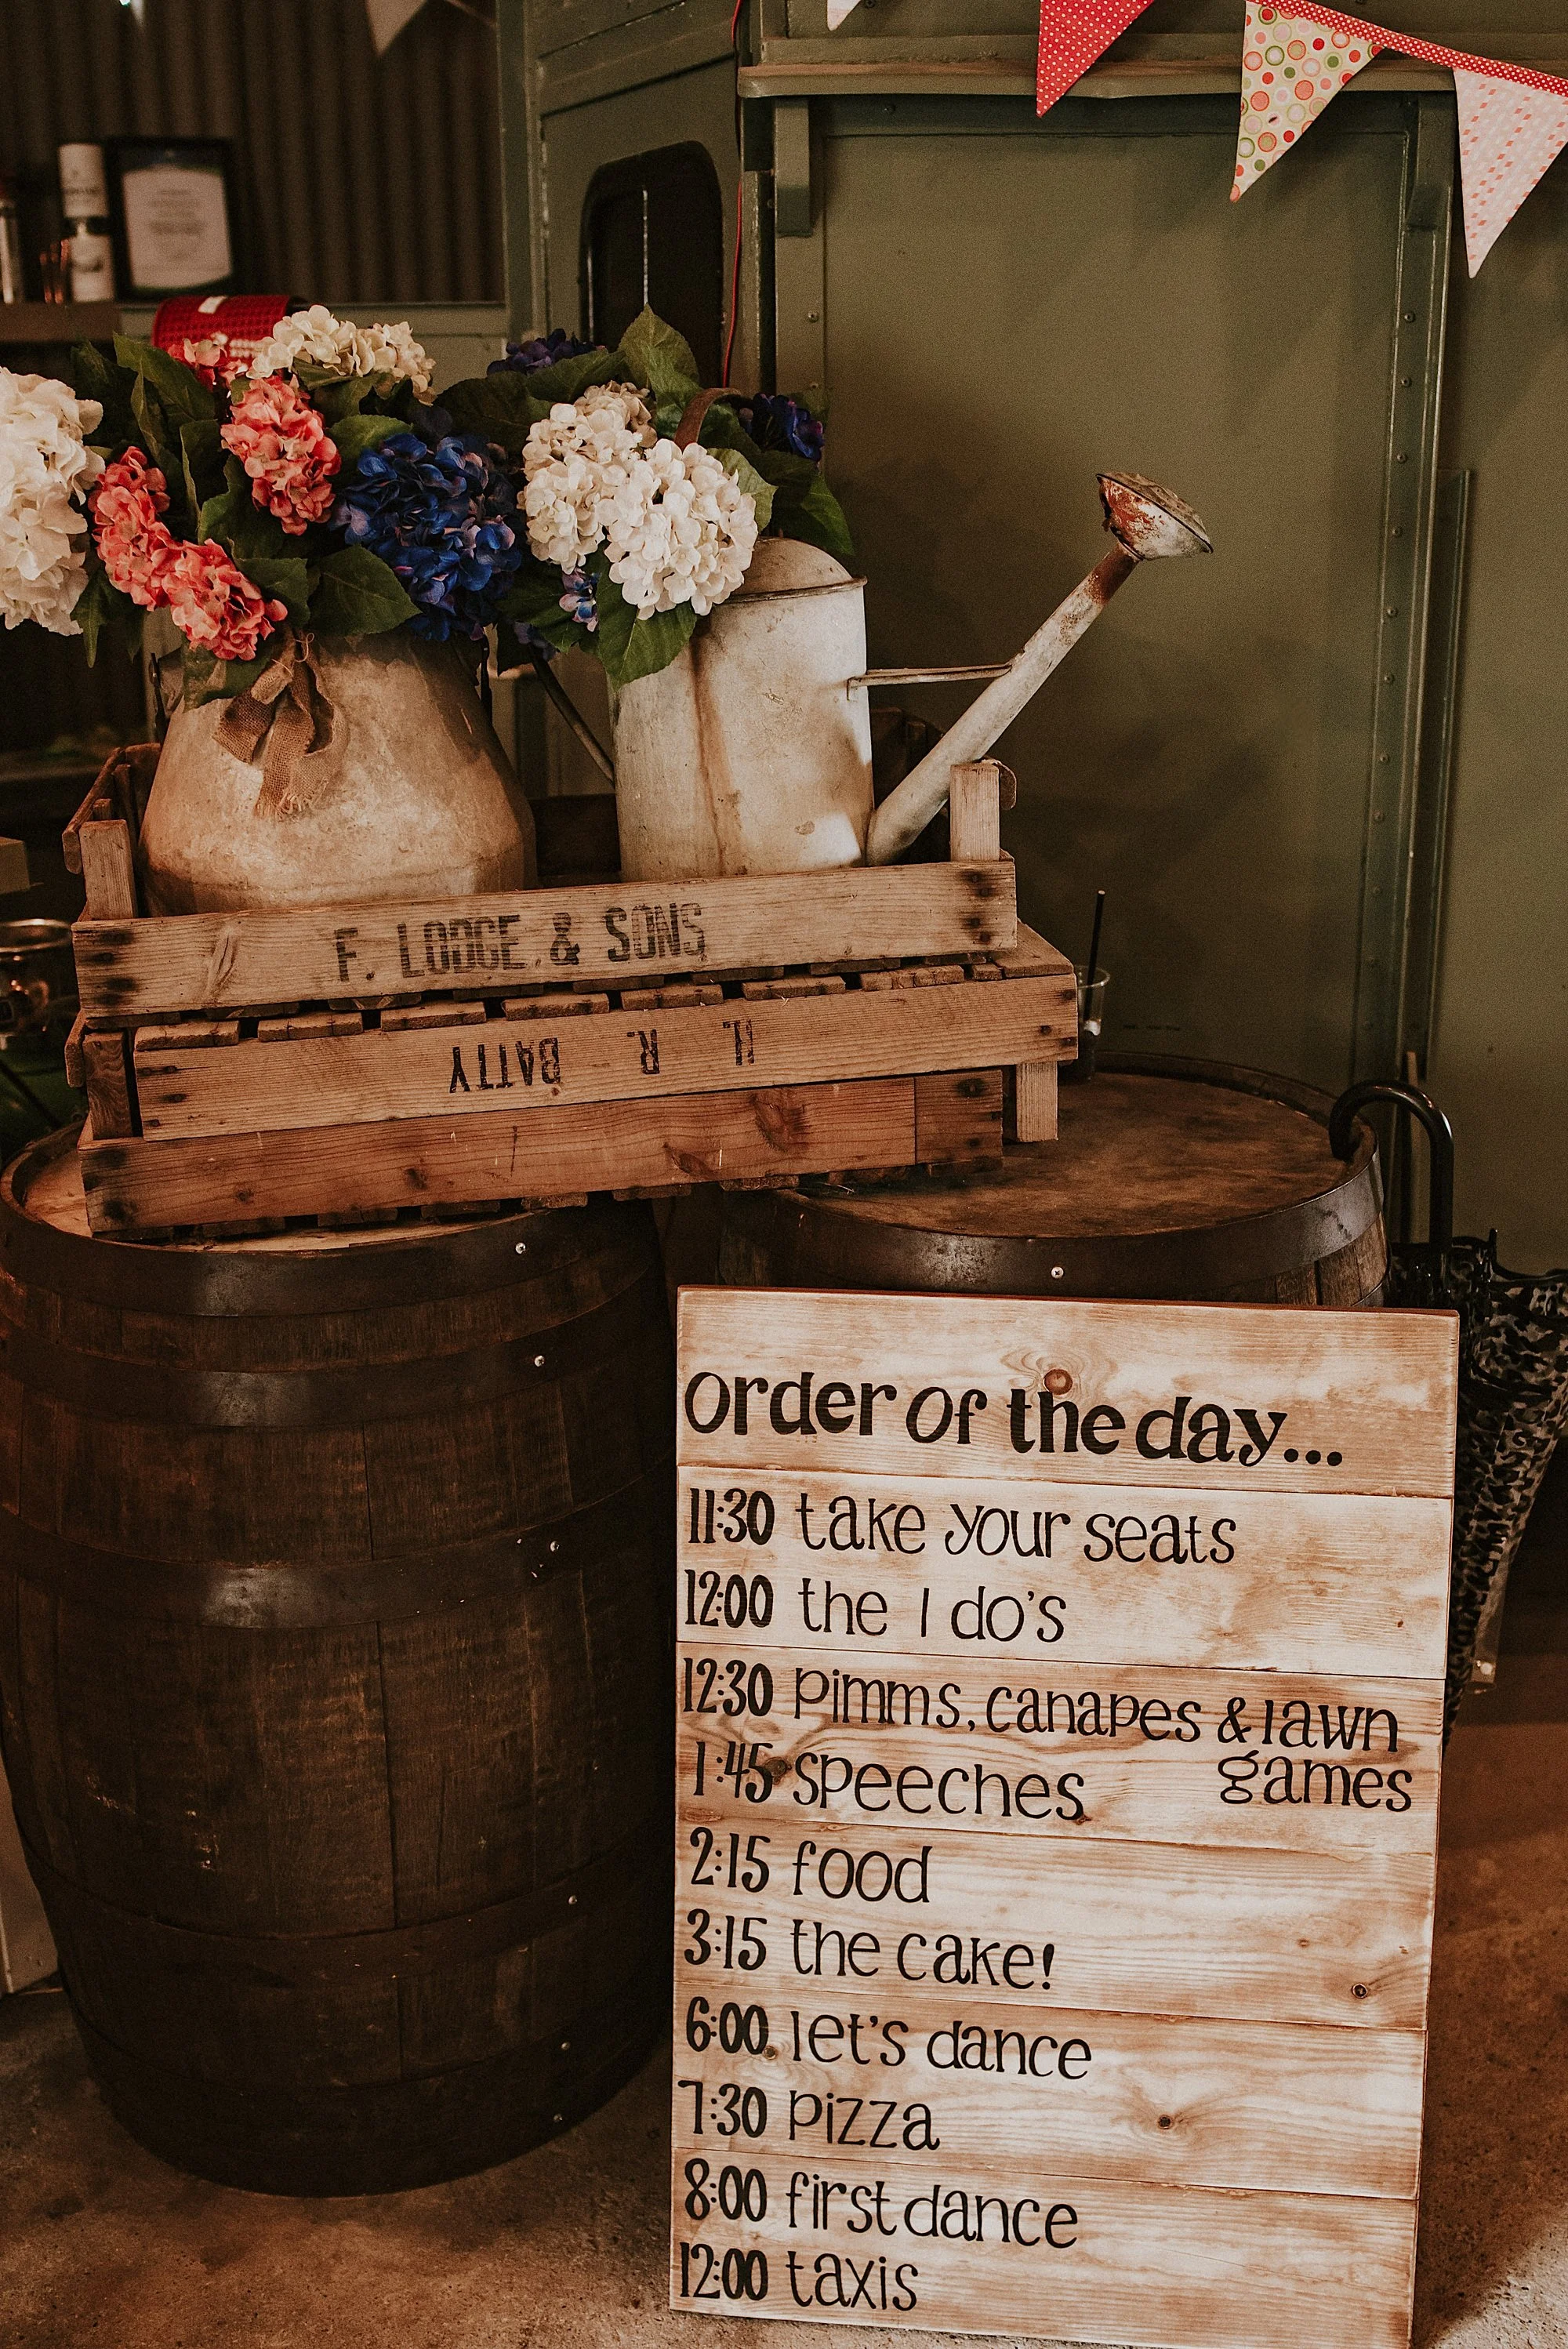 F. LODGE & SONS
H. R. BATTY
Order of the day...
11:30 take your seats
12:00 the I do's
12:30 Pimms, canapes & lawn
games
1:45 speeches
2:15 food
3:15 the cake!
6:00 let's dance
7:30 pizza
8:00 first dance
12:00 taxis